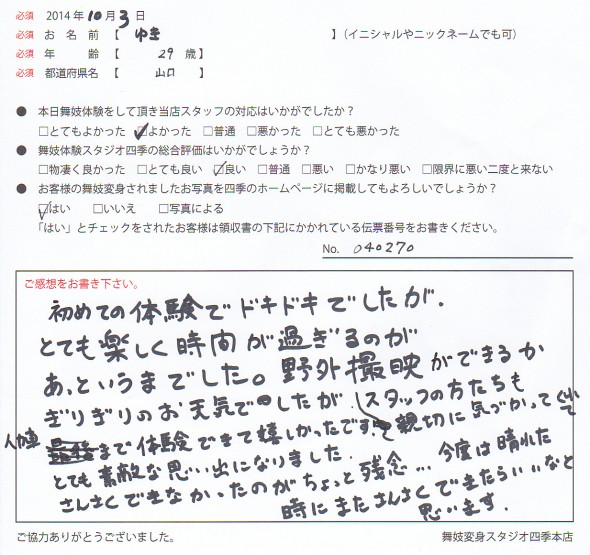 必須 2014年10月3日
必須 お名前【 ゆき 】(イニシャルやニックネームでも可)
必須 年齢【 29 歳】
必須 都道府県名【 山口 】
● 本日舞妓体験をして頂き当店スタッフの対応はいかがでしたか？
□とてもよかった ☑よかった □普通 □悪かった □とても悪かった
● 舞妓体験スタジオ四季の総合評価はいかがでしょうか？
□物凄く良かった □とても良い ☑良い □普通 □悪い □かなり悪い □限界に悪い二度と来ない
● お客様の舞妓変身されましたお写真を四季のホームページに掲載してもよろしいでしょうか？
☑はい □いいえ □写真による
「はい」とチェックをされたお客様は領収書の下記にかかれている伝票番号をお書きください。
No. 040270
ご感想をお書き下さい。
初めての体験でドキドキでしたが、
とても楽しく時間が過ぎるのが
あっというまでした。野外撮映ができるか
ぎりぎりのお天気でしたが、スタッフの方たちも
親切に気づかってくれて
人力車まで体験できて嬉しかったです。
とても素敵な思い出になりました。
さんさくできなかったのがちょっと残念… 今度は晴れた
時にまたさんさくできたらいいなと
思います。
ご協力ありがとうございました。
舞妓変身スタジオ四季本店